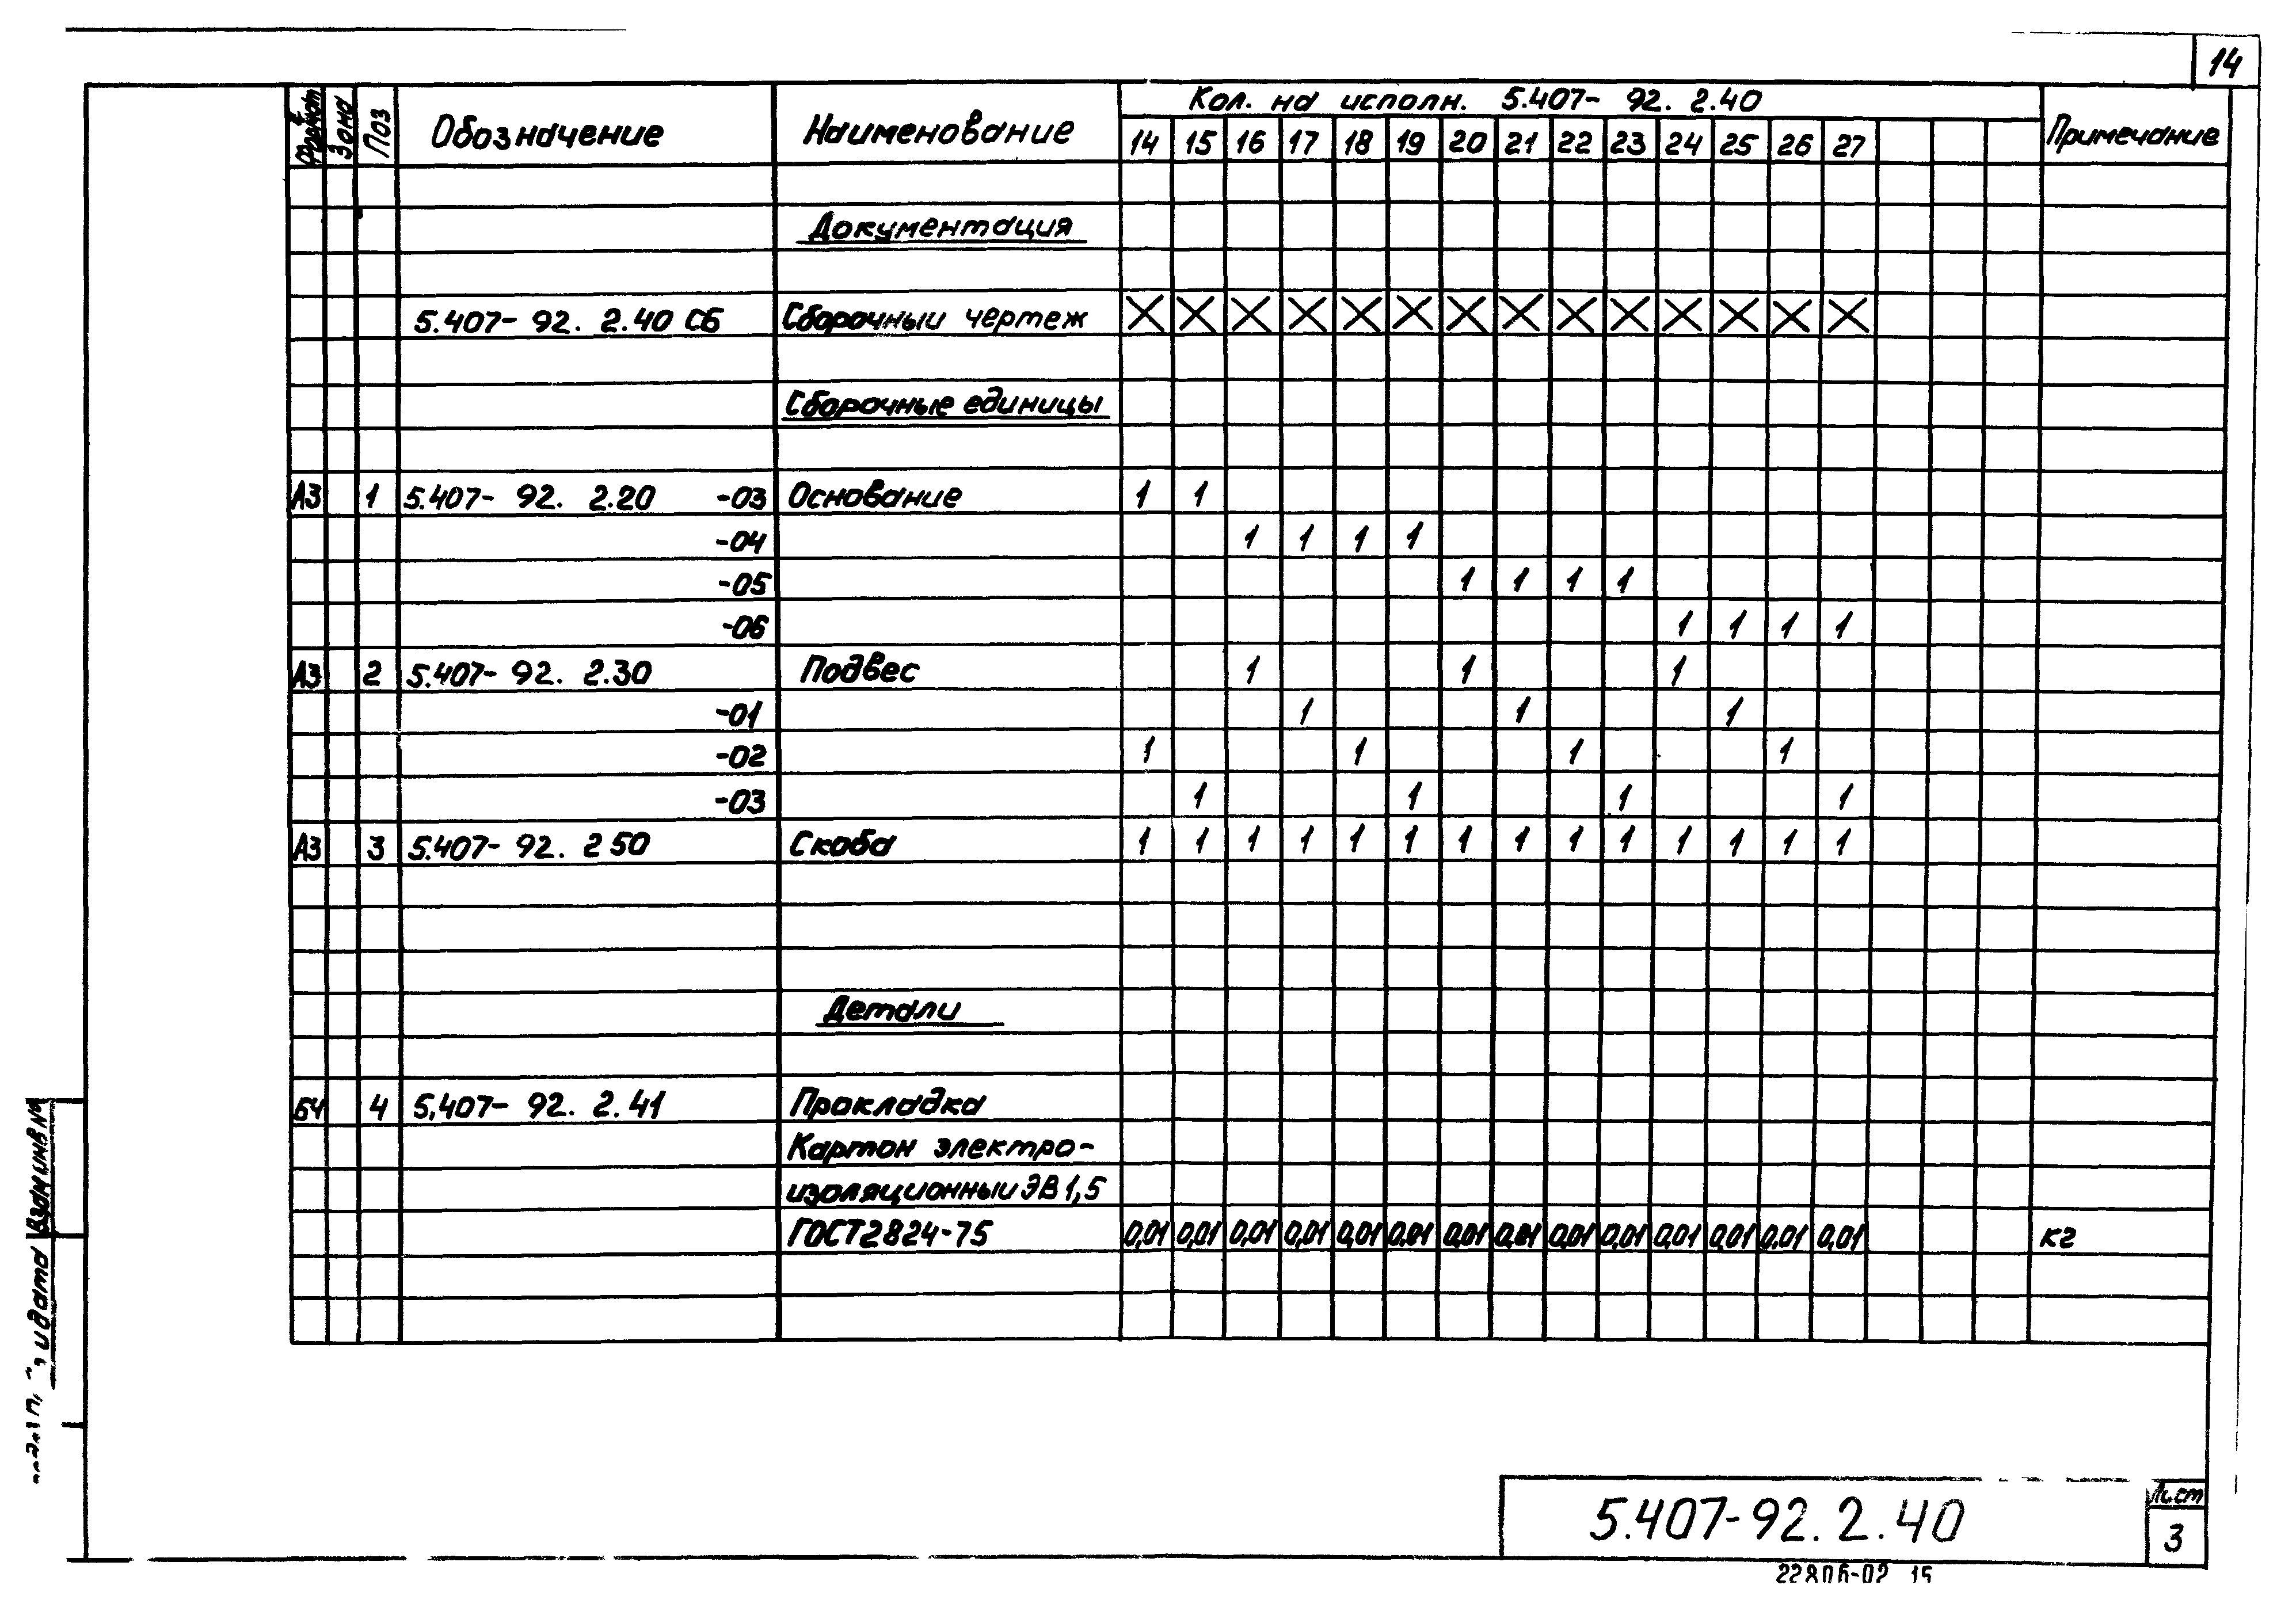 14
Формат Зона Поз Обозначение Наименование Кол. на исполн. 5.407- 92. 2.40 Примечание
14 15 16 17 18 19 20 21 22 23 24 25 26 27
Документация
5.407- 92. 2.40 СБ Сборочный чертеж X X X X X X X X X X X X X X
Сборочные единицы
А3 1 5.407- 92. 2.20 -03 Основание 1 1
-04 1 1 1 1
-05 1 1 1 1
-06 1 1 1 1
А3 2 5.407- 92. 2.30 Подвес 1 1 1
-01 1 1 1
-02 1 1 1 1
-03 1 1 1 1
А3 3 5.407- 92. 2 50 Скоба 1 1 1 1 1 1 1 1 1 1 1 1 1 1
Детали
БЧ 4 5,407- 92. 2.41 Прокладка
Картон электро-
изоляционный ЭВ 1,5
ГОСТ 2824-75 0,01 0,01 0,01 0,01 0,01 0,01 0,01 0,01 0,01 0,01 0,01 0,01 0,01 0,01 кг
Взам инв №
и дата
5.407-92.2.40
Лист
3
22806-02 15